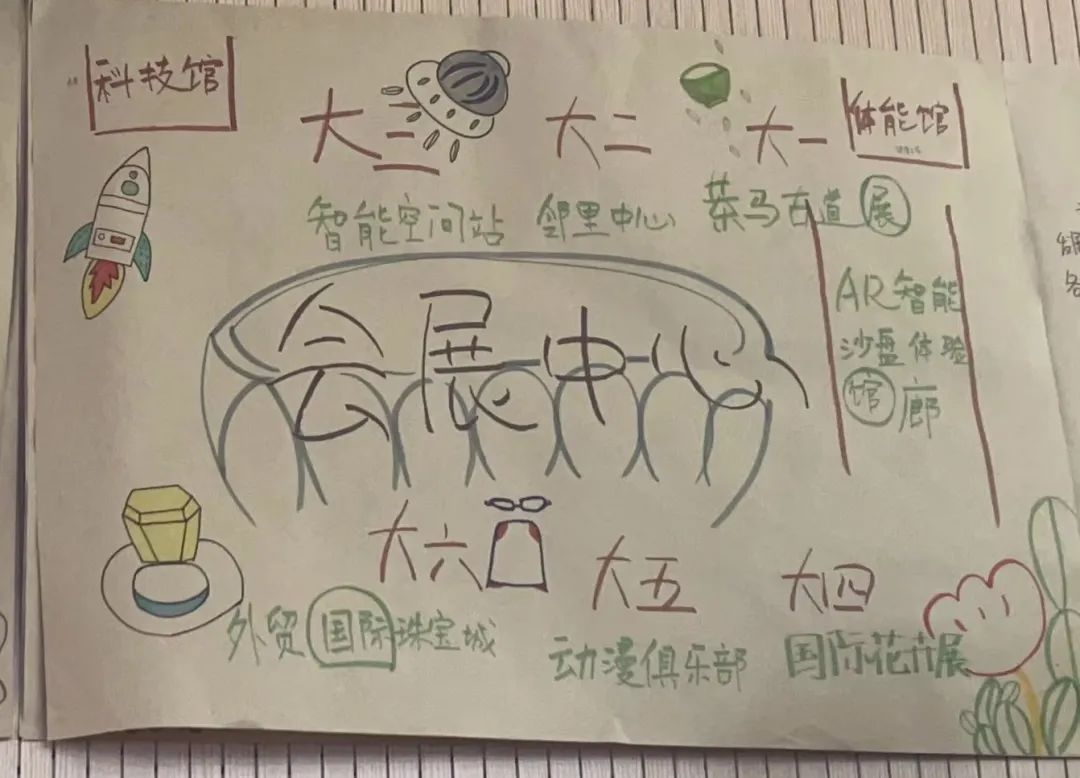 科技馆
大三
大二
大一
体能馆
智能空间站
邻里中心
茶马古道展
AR智能
沙盘体验
馆廊
会展中心
大六
大五
大四
外贸国际珠宝城
动漫俱乐部
国际花卉展